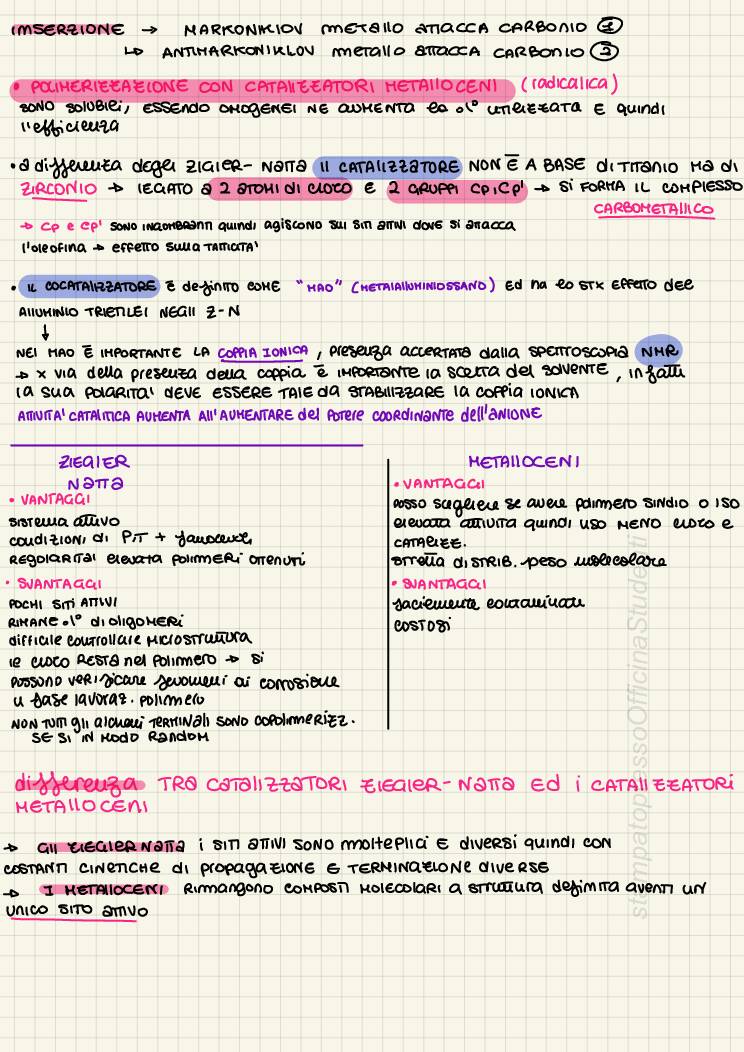 IMSERZIONE → MARKONIKLOV METALLO ATTACCA CARBONIO ①
↳ ANTIMARKONIKLOV METALLO ATTACCA CARBONIO ②
• POLIMERIZZAZIONE CON CATALIZZATORI METALLOCENI (radicalica)
SONO SOLUBILI, ESSENDO OMOGENEI NE AUMENTA la % UTILIZZATA E quindi
l'efficienza
• a differenza degli ZIGLER-NATTA IL CATALIZZATORE NON È A BASE di TITANIO MA di
ZIRCONIO → LEGATO a 2 ATOMI DI CLORO E 2 GRUPPI CP, CP' → SI FORMA IL COMPLESSO
CARBOMETALLICO
→ CP e CP' SONO INGOMBRANTI quindi agiscono sui siti attivi dove si attacca
l'olefina → effetto sulla TATTICITA'
• IL COCATALIZZATORE È definito come "MAO" (METALALLUMINIOSSANO) ED ha lo STX EFFETTO DEL
ALLUMINIO TRIETILEI NEGLI Z-N
↓
NEI MAO È IMPORTANTE LA COPPIA IONICA, presenza accertata dalla SPETTROSCOPIA NMR
→ x via della presenza della coppia È IMPORTANTE la scelta del SOLVENTE, infatti
la sua POLARITA' DEVE ESSERE TALE da STABILIZZARE la COPPIA IONICA
ATTIVITA' CATALITICA AUMENTA ALL'AUMENTARE del POTERE COORDINANTE dell'ANIONE
ZIEGLER
NATTA
• VANTAGGI
SISTEMA ATTIVO
CONDIZIONI di P,T + favorevoli
REGOLARITA' elevata POLIMERI OTTENUTI
• SVANTAGGI
POCHI SITI ATTIVI
RIMANE % di OLIGOMERI
difficile controllare MICROSTRUTTURA
le cloro RESTA nel POLIMERO → SI
possono verificare fenomeni di corrosione
in fase lavoraz. polimero
NON TUTTI gli alcheni TERMINALI SONO COPOLIMERIZZ.
SE SI IN MODO RANDOM
METALLOCENI
• VANTAGGI
posso scegliere se avere polimero SINDIO O ISO
elevata attività quindi uso MENO cloro e
CATALIZZ.
stretta DISTRIB. peso molecolare
• SVANTAGGI
facilmente contaminati
COSTOSI
differenza TRA CATALIZZATORI ZIEGLER-NATTA ED i CATALIZZATORI
METALLOCENI
→ GLI ZIEGLER NATTA i SITI ATTIVI SONO MOLTEPLICI E DIVERSI quindi CON
COSTANTI CINETICHE di PROPAGAZIONE E TERMINAZIONE DIVERSE
→ I METALLOCENI RIMANGONO COMPOSTI MOLECOLARI a STRUTTURA DEFINITA AVENTI UN
UNICO SITO ATTIVO
stampatopressoOfficinaStudenti